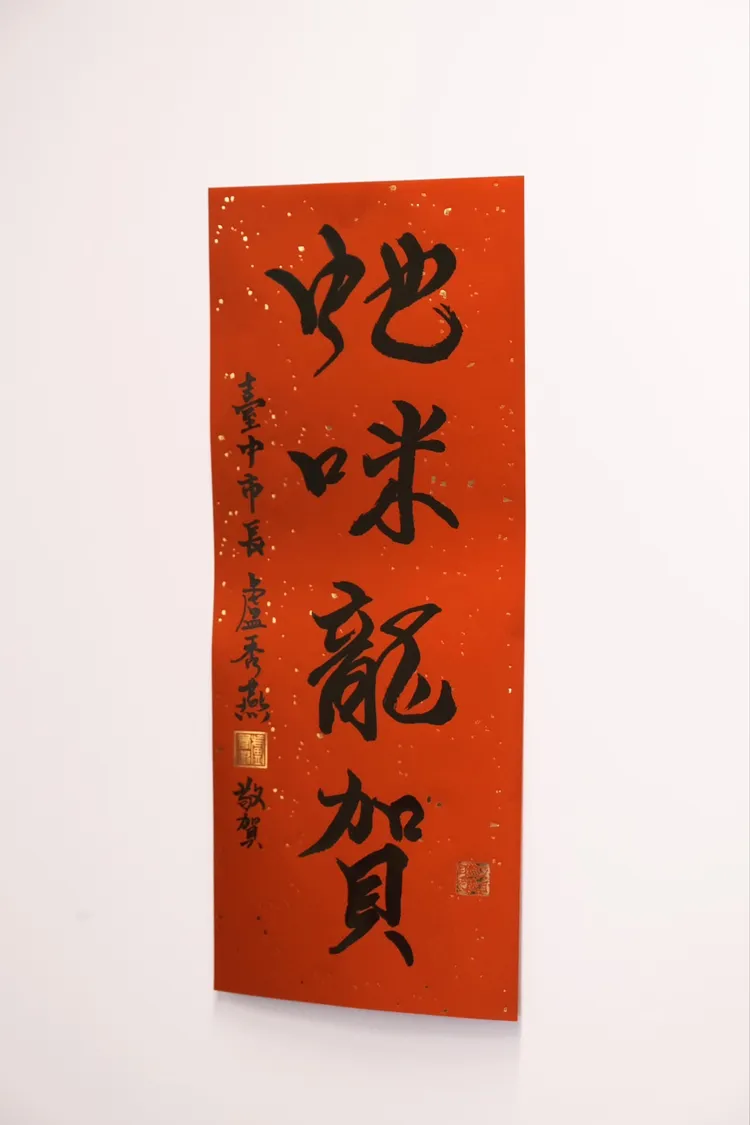 蛇咪龍賀
臺中市長 盧秀燕 敬賀